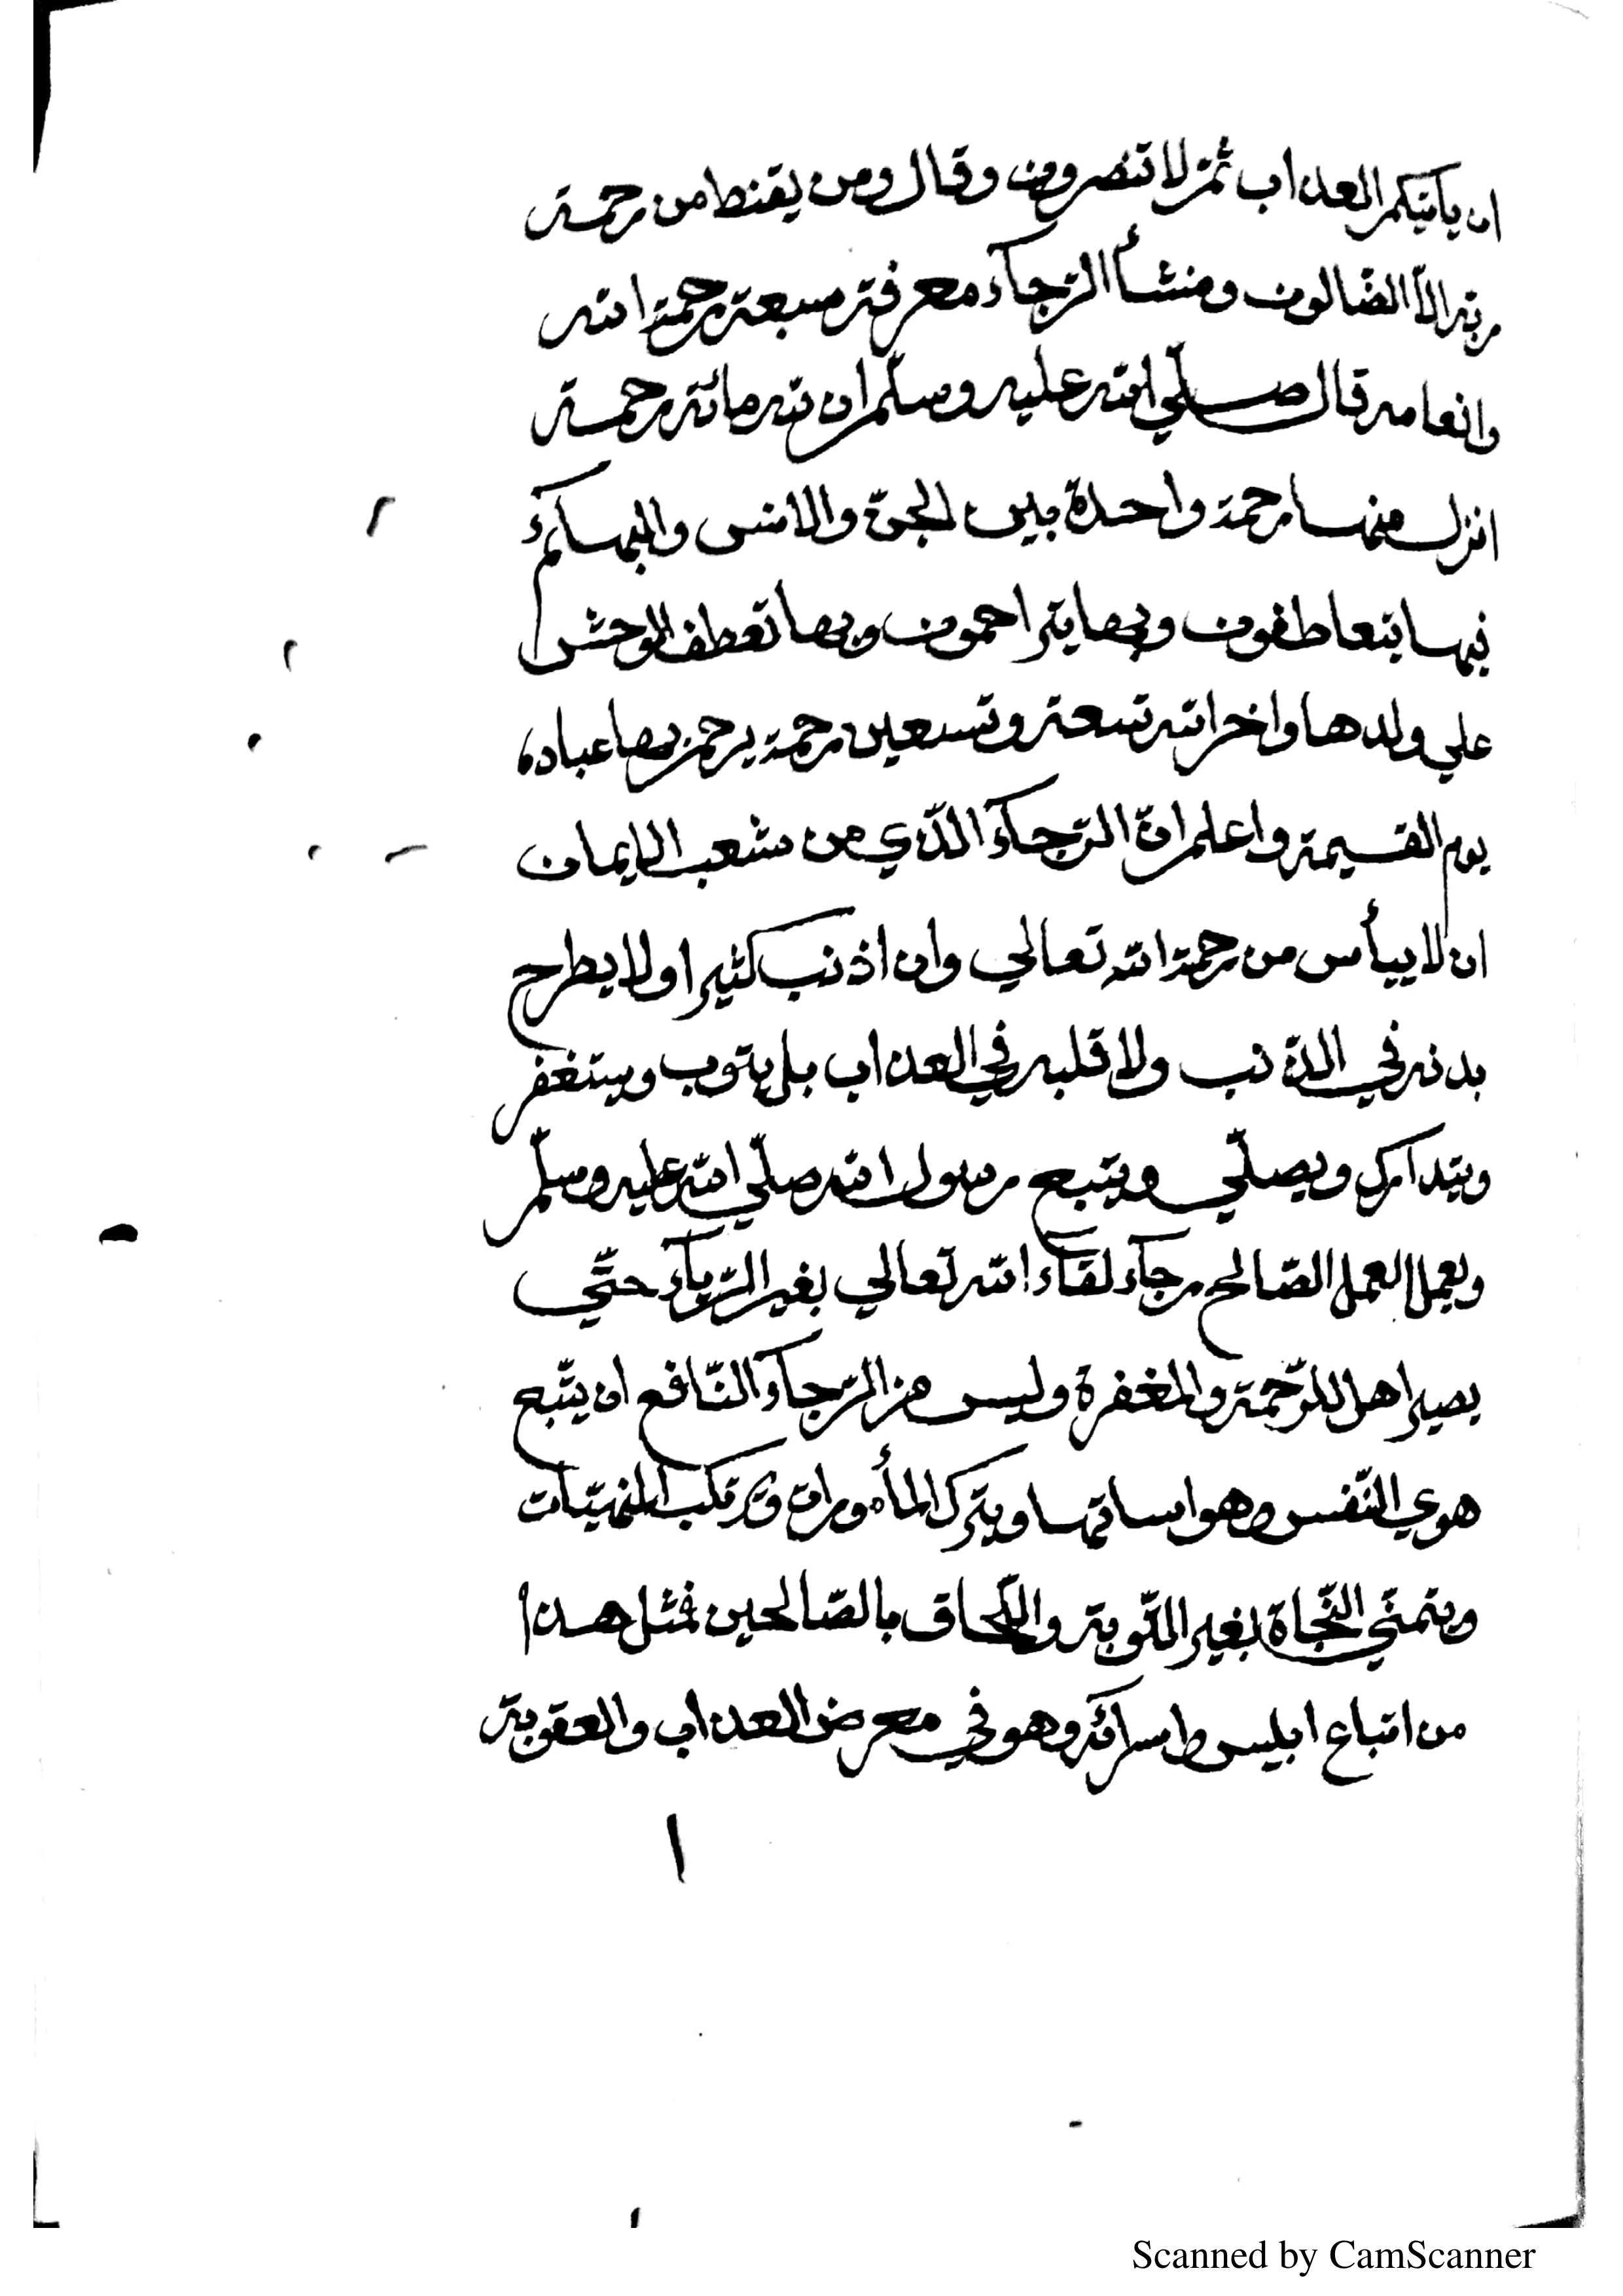 ان يأتيكم العذاب ثمّ لا تنصرون وقال ومن يقنط من رحمة
ربّه الّا الضّالون ومنشأ الرّجآء معرفة سبعة رحمة الله
وانعامه قال صلّي الله عليه وسلّم ان لله مائة رحمة
انزل منها رحمة واحدة بين الجنّ والانس والبهآئم
فيها يتعاطفون وبها يتراحمون وبها تعطف الوحش
علي ولدها واخر الله تسعة وتسعين رحمة يرحم بها عباده
يوم القيمة واعلم انّ الرّجآء الّذي من شعب الايمان
ان لا ييأس من رحمة الله تعالي وان اذنب كثيرا ولا يطرح
بدنه في الذّنب ولا قلبه في العذاب بل يتوب ويستغفر
ويتدارك ويصلّي ويتبع رسول الله صلّي الله عليه وسلّم
ويعمل العمل الصّالح رجآء لقآء الله تعالي بغير الرّيآء حتّي
يصير اهلا للرّحمة والمغفرة وليس من الرّجآء النّافع ان يتّبع
هوي النّفس وهواساتها ويترك المأمورات ويرتكب المنهيّات
ويتمنّي النّجاة بغير التّوبة واللّحاق بالصّالحين فمثل هذا
من اتباع ابليس واسرائه وهو في معرض العذاب والعقوبة
Scanned by CamScanner